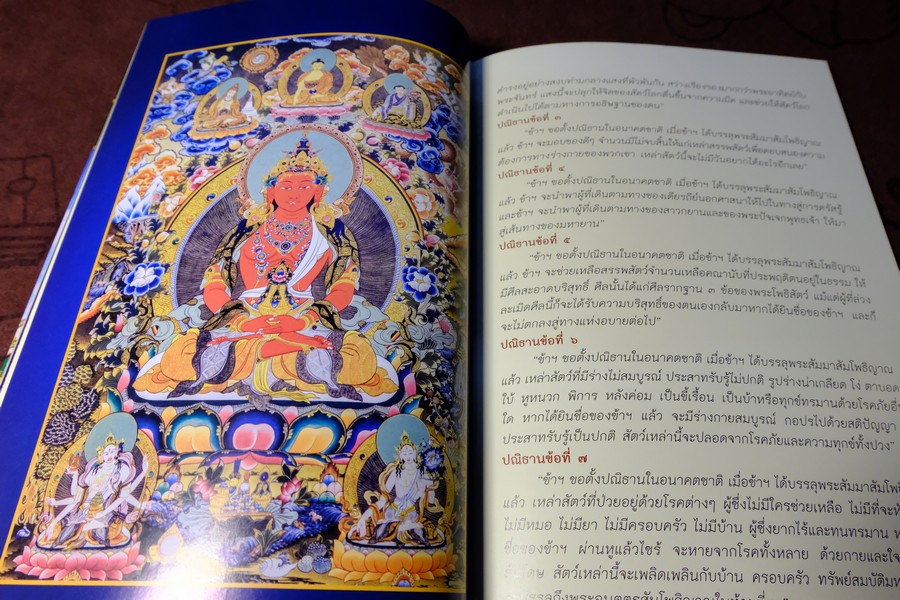 ดำรงอยู่อย่างสงบท่ามกลางแสงที่พัวพันกัน สว่างเรืองรองมากกว่าพระอาทิตย์กับ
พระจันทร์ แสงนี้จะปลุกให้จิตของสัตว์โลกตื่นขึ้นจากความมืด และช่วยให้สัตว์โลก
ดำเนินไปได้ตามทางการอธิษฐานของตน”
ปณิธานข้อที่ ๓
“ข้าฯ ขอตั้งปณิธานในอนาคตชาติ เมื่อข้าฯ ได้บรรลุพระสัมมาสัมโพธิญาณ
แล้ว ข้าฯ จะมอบของดีๆ จำนวนมีไม่จบสิ้นให้แก่เหล่าสรรพสัตว์เพื่อตอบสนองความ
ต้องการทางร่างกายของพวกเขา เหล่าสัตว์นี้จะไม่มีวันอยากได้อะไรอีกเลย”
ปณิธานข้อที่ ๔
“ข้าฯ ขอตั้งปณิธานในอนาคตชาติ เมื่อข้าฯ ได้บรรลุพระสัมมาสัมโพธิญาณ
แล้ว ข้าฯ จะนำพาผู้ที่เดินตามทางของเดียรถีย์นอกศาสนาให้ไปในทางสู่การตรัสรู้
และข้าฯ จะนำพาผู้ที่เดินตามทางของสาวกยานและของพระปัจเจกพุทธเจ้า ให้มา
สู่เส้นทางของมหายาน”
ปณิธานข้อที่ ๕
“ข้าฯ ขอตั้งปณิธานในอนาคตชาติ เมื่อข้าฯ ได้บรรลุพระสัมมาสัมโพธิญาณ
แล้ว ข้าฯ จะช่วยเหลือสรรพสัตว์จำนวนเหลือคณานับที่ประพฤติตนอยู่ในธรรม ให้
มีศีลสะอาดบริสุทธิ์ ศีลนั้นได้แก่ศีลรากฐาน ๓ ข้อของพระโพธิสัตว์ แม้แต่ผู้ที่ล่วง
ละเมิดศีลนี้ก็จะได้รับความบริสุทธิ์ของตนเองกลับมาหากได้ยินชื่อของข้าฯ และก็
จะไม่ตกลงสู่ทางแห่งอบายต่อไป”
ปณิธานข้อที่ ๖
“ข้าฯ ขอตั้งปณิธานในอนาคตชาติ เมื่อข้าฯ ได้บรรลุพระสัมมาสัมโพธิญาณ
แล้ว เหล่าสัตว์ที่มีร่างไม่สมบูรณ์ ประสาทรับรู้ไม่ปกติ รูปร่างน่าเกลียด โง่ ตาบอด
ใบ้ หูหนวก พิการ หลังค่อม เป็นขี้เรื้อน เป็นบ้าหรือทุกข์ทรมานด้วยโรคภัยอื่น
ใด หากได้ยินชื่อของข้าฯ แล้ว จะมีร่างกายสมบูรณ์ กอปรไปด้วยสติปัญญา
ประสาทรับรู้เป็นปกติ สัตว์เหล่านี้จะปลอดจากโรคภัยและความทุกข์ทั้งปวง”
ปณิธานข้อที่ ๗
“ข้าฯ ขอตั้งปณิธานในอนาคตชาติ เมื่อข้าฯ ได้บรรลุพระสัมมาสัมโพธิ
แล้ว เหล่าสัตว์ที่ป่วยอยู่ด้วยโรคต่างๆ ผู้ซึ่งไม่มีใครช่วยเหลือ ไม่มีที่จะ
ไม่มีหมอ ไม่มียา ไม่มีครอบครัว ไม่มีบ้าน ผู้ซึ่งยากไร้และทนทรมาน
ชื่อของข้าฯ ผ่านหูแล้วไซร้ จะหายจากโรคทั้งหลาย ด้วยกายและใจ
สัตว์เหล่านี้จะเพลิดเพลินกับบ้าน ครอบครัว ทรัพย์สมบัติ